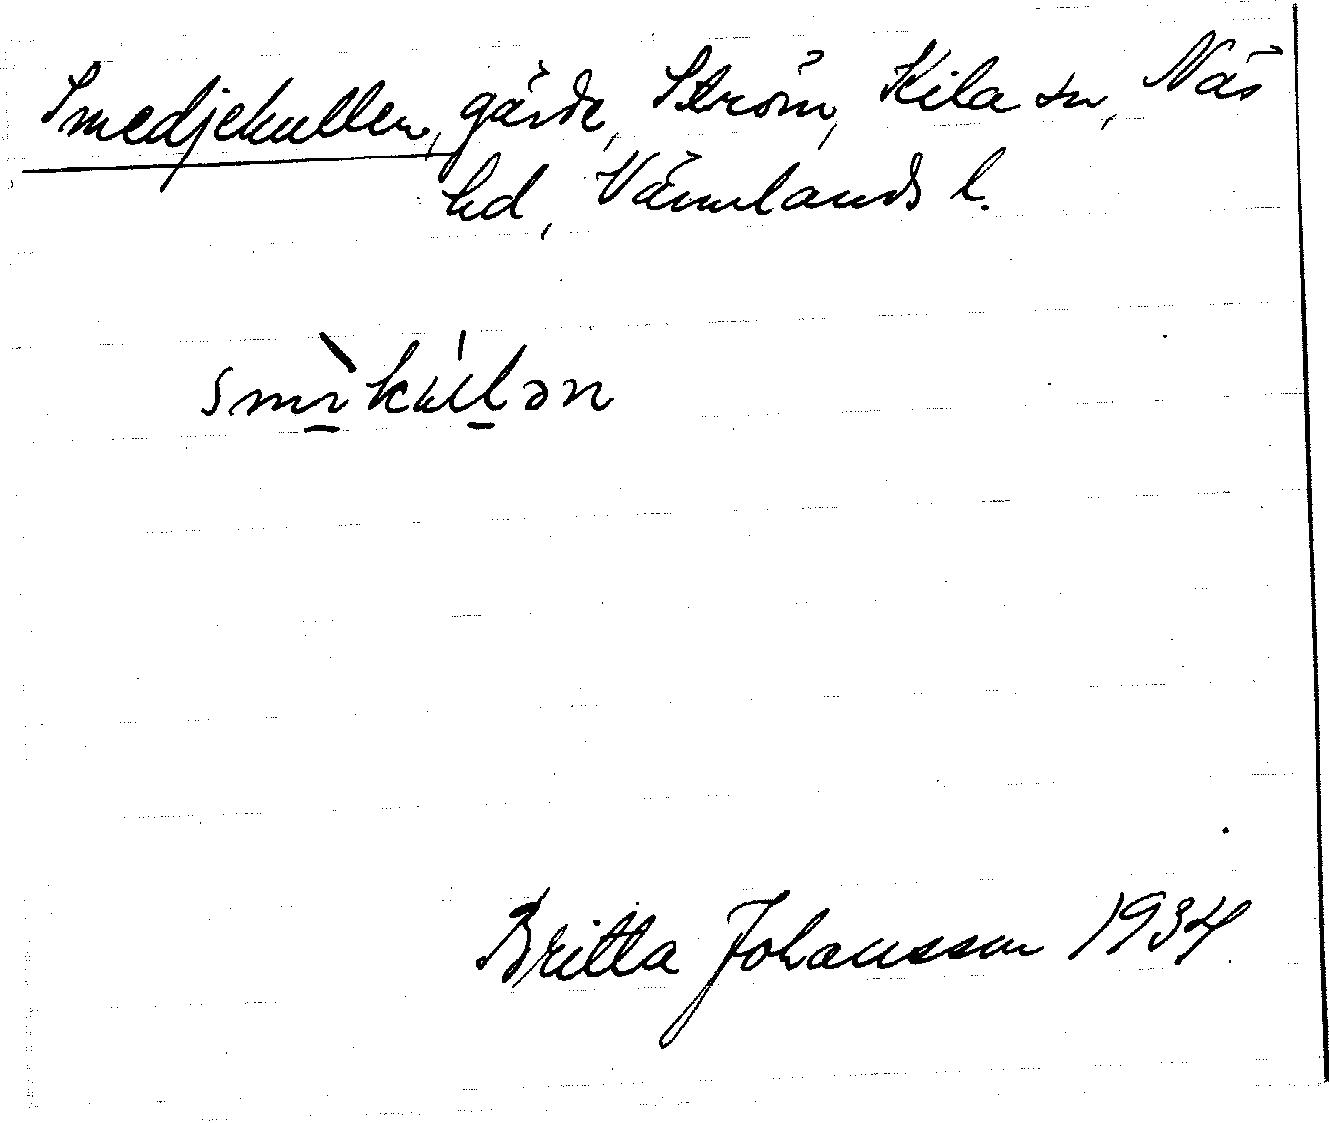 Smedjekullen, gärde, Ström, Kila sn, Näs
hd, Värmlands l.
smìkúlən
Britta Johansson 1934